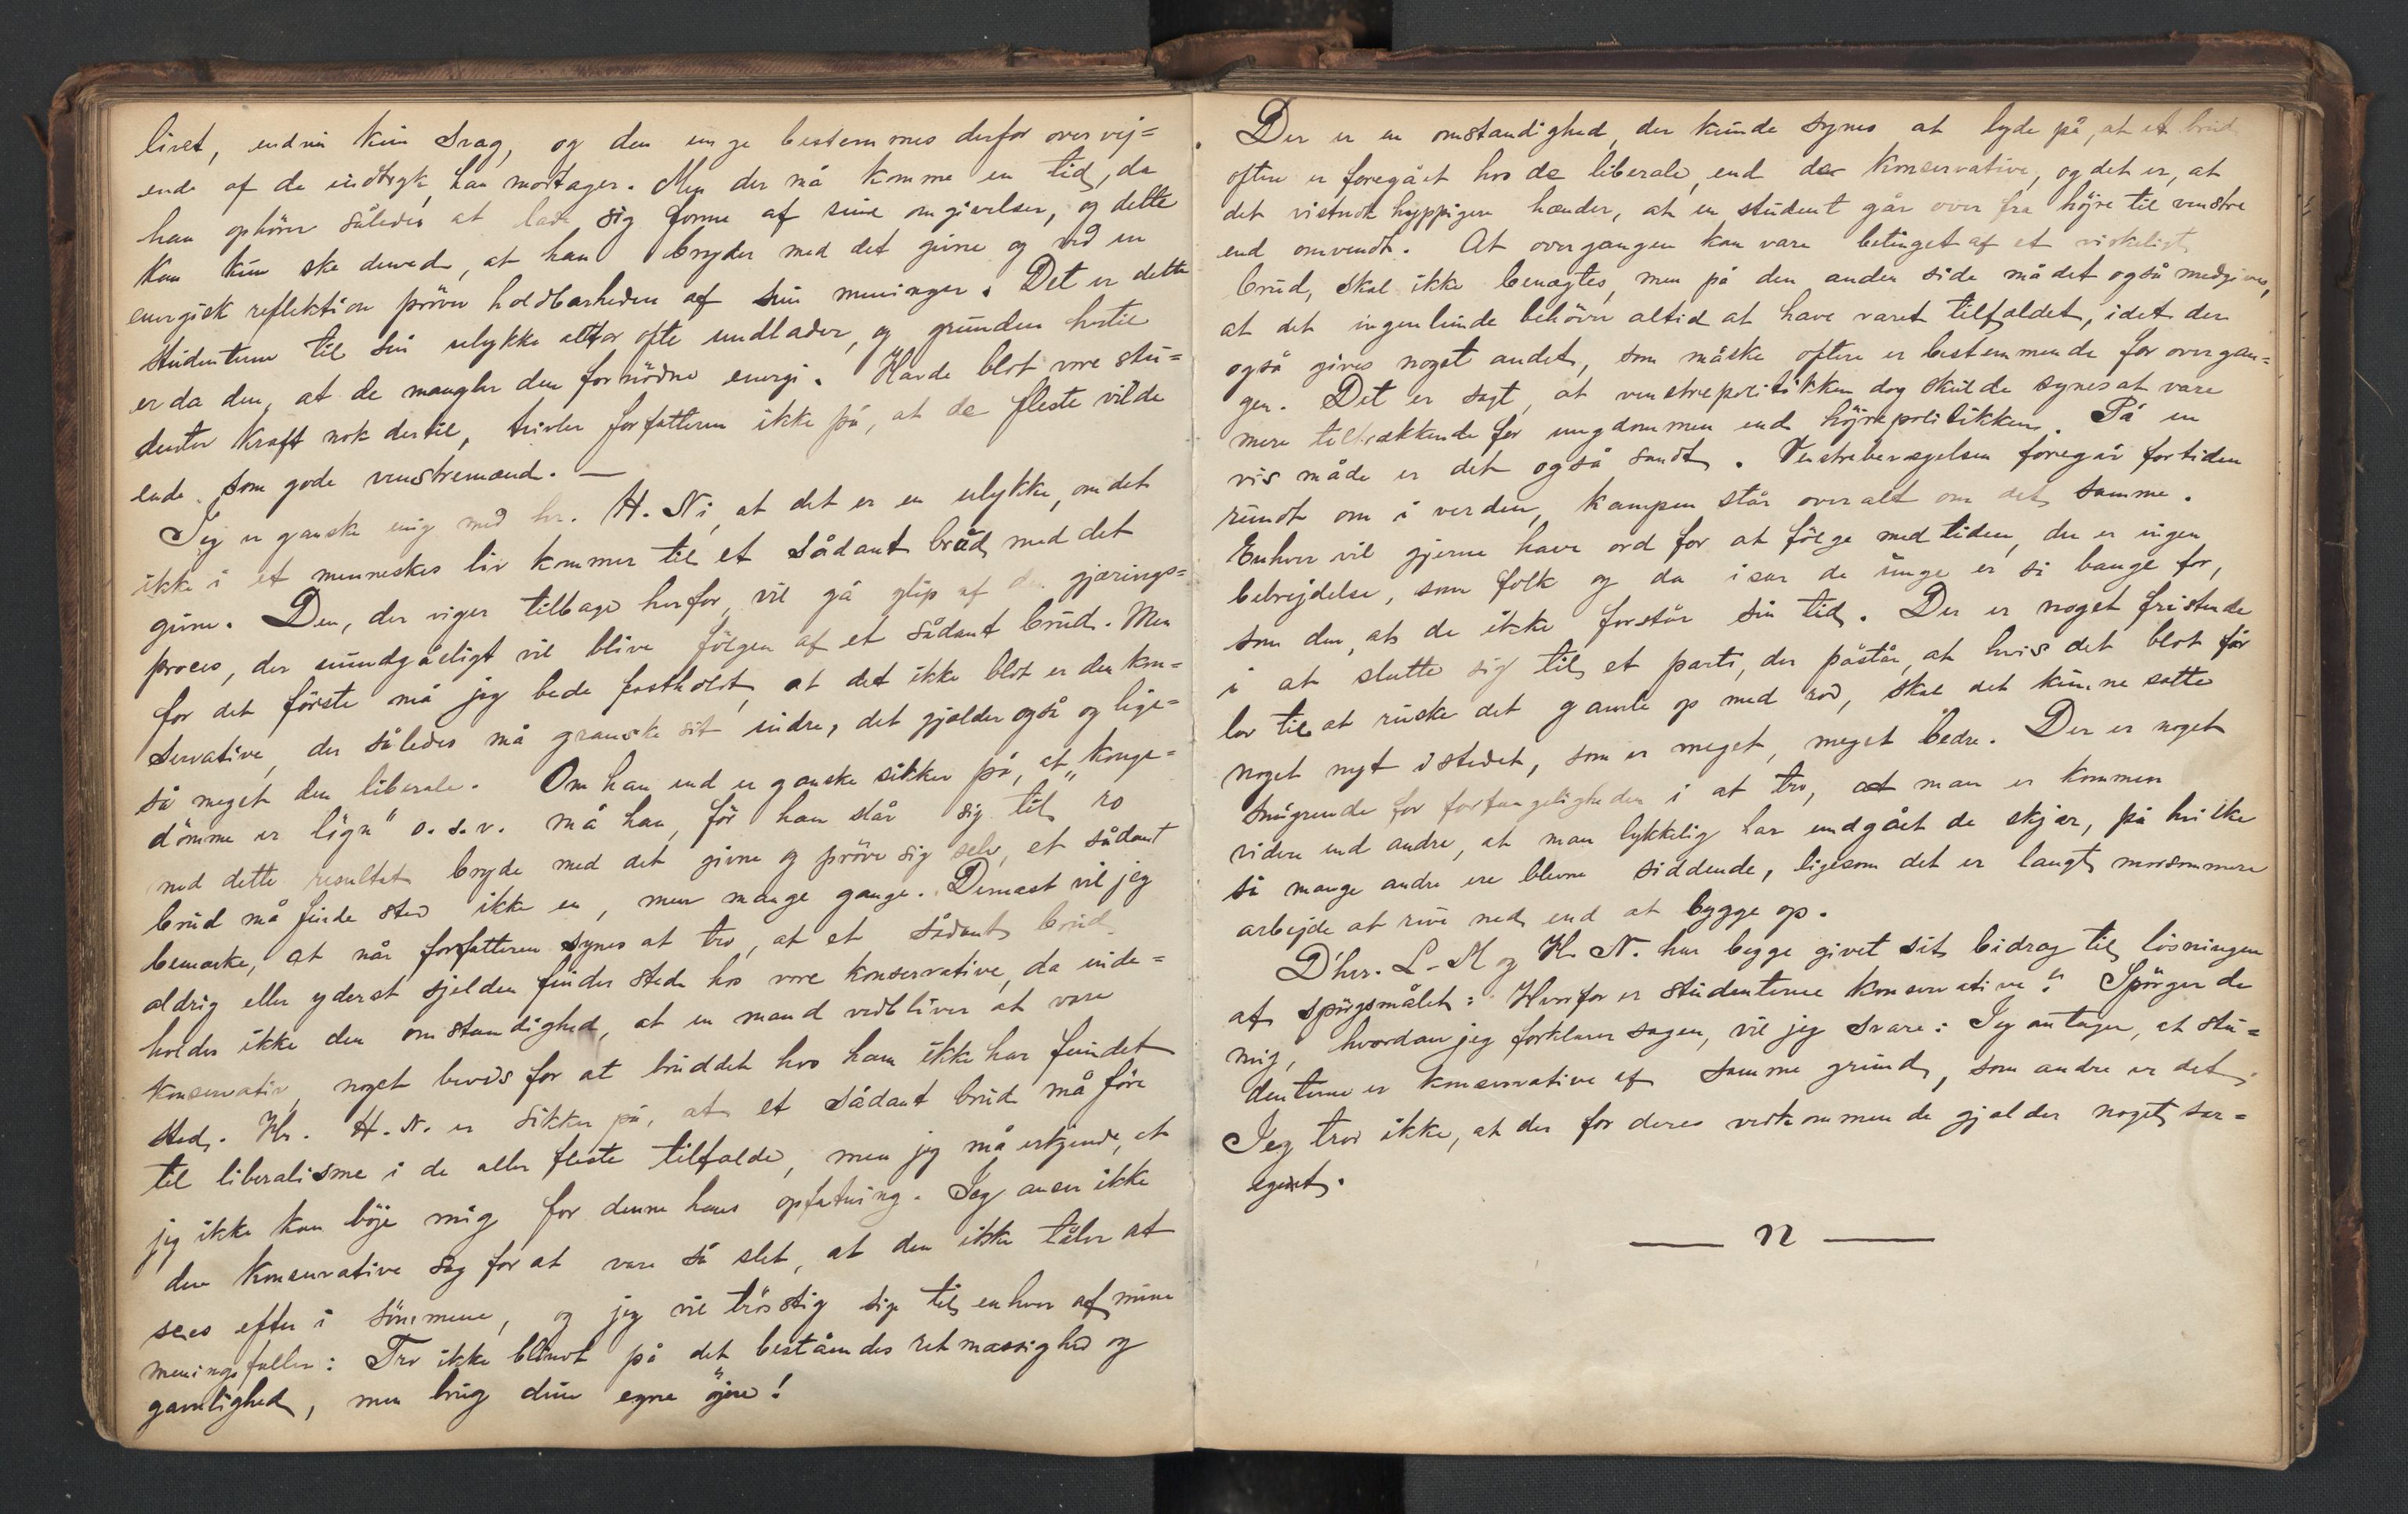 livet, endnu kun svag, og den unge bestemmes derfor overvej=
ende af de indtryk, han modtager. Men der må komme en tid, da
han ophører således at lade sig forme af sine omgivelser, og dette
kan kun ske derved, at han bryder med det givne og ved en
energisk reflektion pröver holdbarheden af sine meninger. Det er dette
studenterne til sin ulykke altfor ofte undlader, og grunden hertil
er da den, at de mangler den fornödne energi. Havde blot vore stu=
denter kraft nok dertil, tvivler forfatteren ikke på, at de fleste vilde
ende som gode venstremænd. —
Jeg er ganske enig med hr. H. N. i, at det er en ulykke, om det
ikke i et menneskes liv kommer til et sådant brud med det
givne. Den, der viger tilbage herfor, vil gå glip af den gjærings=
proces, der uundgåeligt vil blive fölgen af et sådant brud. Men
for det förste må jeg bede fastholdt, at det ikke blot er den kon=
servative, der således må granske sit indre, det gjælder også og lige=
så meget den liberale. Om han end er ganske sikker på, at "konge=
dömme er lögn" o.s.v. må han, för han slår sig til ro
med dette resultat bryde med det givne og pröve sig selv, et sådant
brud må finde sted ikke en, men mange gange. Dernæst vil jeg
bemærke, at når forfatteren synes at tro, at et sådant brud
aldrig eller yderst sjelden finder sted hos vore konservative, da inde=
holder ikke den omstændighed, at en mand vedbliver at være
konservativ, noget bevis for at bruddet hos ham ikke har fundet
sted. Hr. H. N. er sikker på, at et sådant brud må före
til liberalisme i de aller fleste tilfælde, men jeg må erkjende, at
jeg ikke kan böje mig for denne hans opfatning. Jeg anser ikke
den konservative sag for at være så slet, at den ikke tåler at
sees efter i sömmene, og jeg vil tröstig sige til enhver af mine
meningsfæller: Tro ikke blindt på det beståendes retmæssighed og
gavnlighed, men brug dine egne öjne!
Der er en omstændighed, der kunde synes at tyde på, at et brud
oftere er foregået hos de liberale, end de konservative, og det er, at
det vistnok hyppigere hænder, at en student går over fra höjre til venstre
end omvendt. At overgangen kan være betinget af et virkeligt
brud, skal ikke benægtes, men på den anden side må det også medgives,
at det ingenlunde behöver altid at have været tilfældet, idet der
også gives noget andet, som måske oftere er bestemmende for overgan=
gen. Det er sagt, at venstrepolitikken dog skulde synes at være
mere tiltrækkende for ungdommen end höjrepolitikken. På en
vis måde er det også sandt. Venstrebevægelsen foregår fortiden
rundt om i verden, kampen står overalt om det samme.
Enhver vil gjerne have ord for at fölge med tiden, der er ingen
bebrejdelse, som folk og da især de unge er så bange for,
som den, at de ikke forstår sin tid. Der er noget fristende
i at slutte sig til et parti, der påstår, at hvis det blot får
lov til at ruske det gamle op med rod, skal det kunne sætte
noget nyt istedet, som er meget, meget bedre. Der er noget
smigrende for forfængeligheden i at tro, at man er kommen
videre end andre, at man lykkelig har undgået de skjær, på hvilke
så mange andre ere blevne siddende, ligesom det er langt morsommere
arbejde at rive ned end at bygge op.
D'hrr. L-M og H. N. har begge givet sit bidrag til lösningen
af spörgsmålet: "Hvorfor er studenterne konservative?" Spörger de
mig, hvordan jeg forklarer sagen, vil jeg svare: Jeg antager, at stu=
denterne er konservative af samme grund, som andre er det;
Jeg tror ikke, at der for deres vedkommende gjælder noget sær=
eget.
— n —